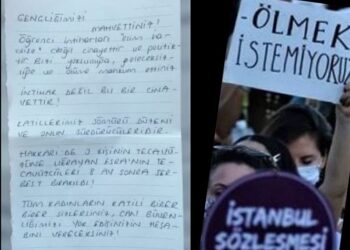 GENÇLİĞİMİZİ
MAHVETTİNİZ!
ÖĞRENCİ İNTİHARLARI "CÜNÜM BA-
DEĞİL CİNAYETTİR VE POLİTİK-
TİR BİZİ YOKSULLUĞA, GELECEKSİZ-
LİĞE VE ÖLÜME MAHKUM ETTİNİZ
İNTİHAR DEĞİL BU BİR CİNA-
YETTİR!
KATİLLERİMİZ SÖMÜRÜ DÜZENİ
VE ONUN SÜRDÜRÜCÜLERİDİR.
HAKKARİ'DE 3 KİŞİNİN TECAVÜ-
ZÜNE UĞRAYAN ESRA'NIN TE-
CAVÜZCÜLERİ 8 AY SONRA SER-
BEST BIRAKILDI!
TÜM KADINLARIN KATİLİ BİRER
BİRER SİZLERSİNİZ, CAN
YOK EDİŞİNİZİN HESA-
BINI VERECEKSİNİZ!
-ÖLMEK
İSTEMİYORUZ
İSTANBUL
SÖZLEŞMESİ